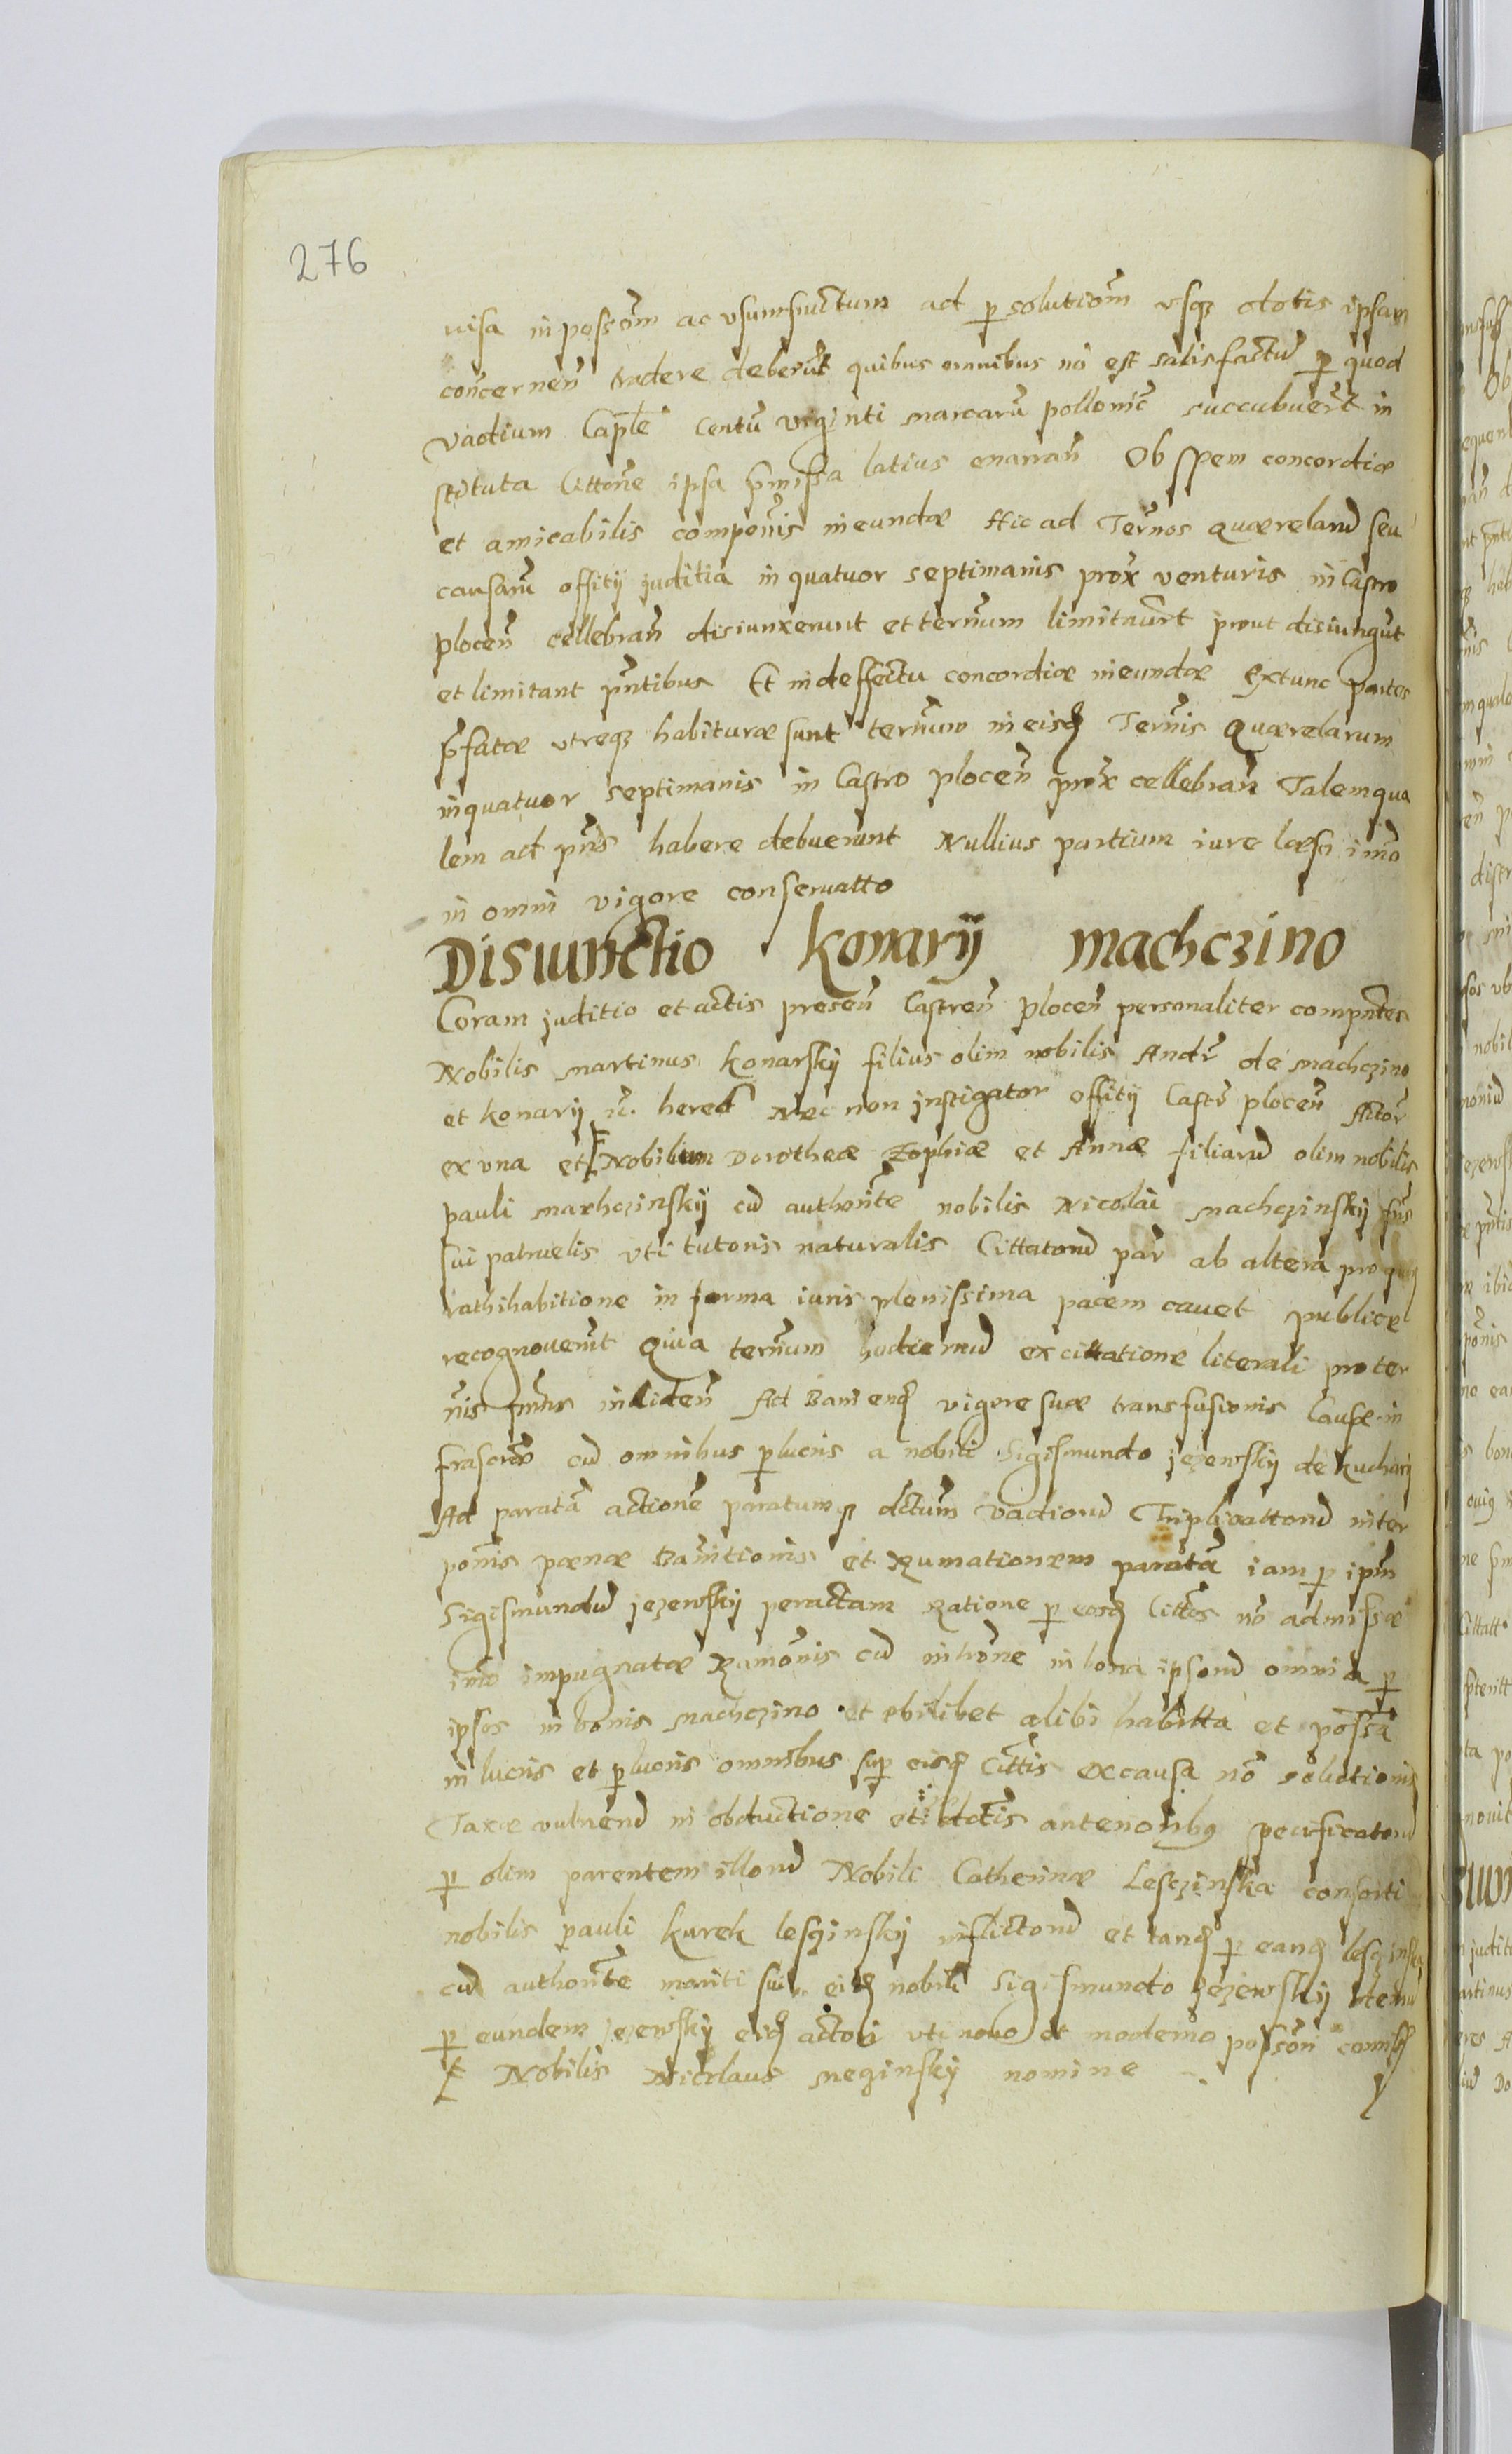 276
visa in possom ac usumfructum ad p solutiom vsq dotis ipsam
concernen tradere deberut quibus omnibus no est satisfactu p quod
vadium Caple Centu viginti marcaru pollonic succubuert in
stituta Cittone ipsa pmissa latius enarran Ob spem concordiæ
et amicabilis componis ineundæ Hic ad Ternos Quærelaru seu
causaru offitij juditia in quatuor septimanis prox venturis in Castro
plocen cellebran disiunxerunt et ternum limitavrt prout disiungut
et limitant pntibus Et in deffectu concordiæ ineundæ Extunc partes
pfatæ vtreq habituræ sunt ternum in eisd Ternis Quærelarum
in quatuor septimanis in Castro plocen prox cellebran Talem qua
lem ad pns habere debuerunt Nullius partium iure læso imo
in omni vigore conservatto
Disiunctio Konarÿ machczino
Coram juditio et actis presen Castren plocen personaliter compntes
Nobilis martinus Konarskÿ filius olim nobilis Andr de machczino
et Konarÿ etc. hered Nec non instigator offitÿ Castr plocen Actor
ex vna et Nobilium Dorotheæ Zophiæ et Annæ filiaru olim nobilis
pauli machczinskÿ cu authorite nobilis Nicolai machczinskÿ fris
sui patruelis vti tutoris naturalis Cittatoru par ab altera pro
rathihabitione in forma iuris plenissima pacem cavet publice
recognoverut Quia ternum hodiernu ex cittatione literali pro ter
nis pntibus inciden Ad Baniend vigore suæ transfusionis Causæ in
frascr cu omnibus p lucris a nobili Sigismundo jezewskÿ de Kucharÿ
Ad parata actione paratumq dctum vadioru Triplicattoru inter
ponis pænæ Banitionis et Rumationem parata iam p ipm
Sigismundu jezewskÿ peractam Ratione p eosd Cittos no admissæ
imo impugnatæ Rumonis cu introne in bona ipsoru omnia p
ipsos in bonis machczino et vbilibet alibi habitta et possa
in lucris et p lucris omnibus sup eisd Cittis ex causa no solutionis
Taxæ vulneru in obductione et dctis anterioribq specificatoru
p olim parentem illoru Nobili Catherinæ Lesczinska consorti
nobilis pauli Kurek lesczinskÿ inflictoru et tand p eand lesczinska
cu authorite mariti sui eid nobili Sigismundo jezewskÿ
p eundem jezewskÿ eid actori vti novo et moderno posson
Nobilis Nicolaus meginskÿ nomine